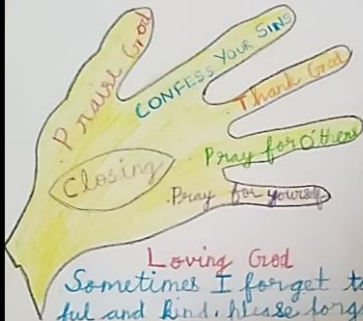 Praise God
CONFESS YOUR SINS
Thank God
Pray for Others
Pray for yourself
Closing
Loving God
Sometimes I forget t
ful and kind. please forg